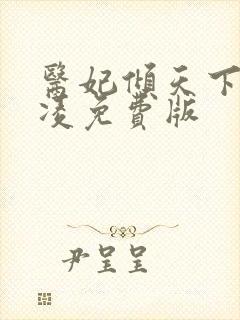 醫妃傾天下
凌免費版
尹呈呈